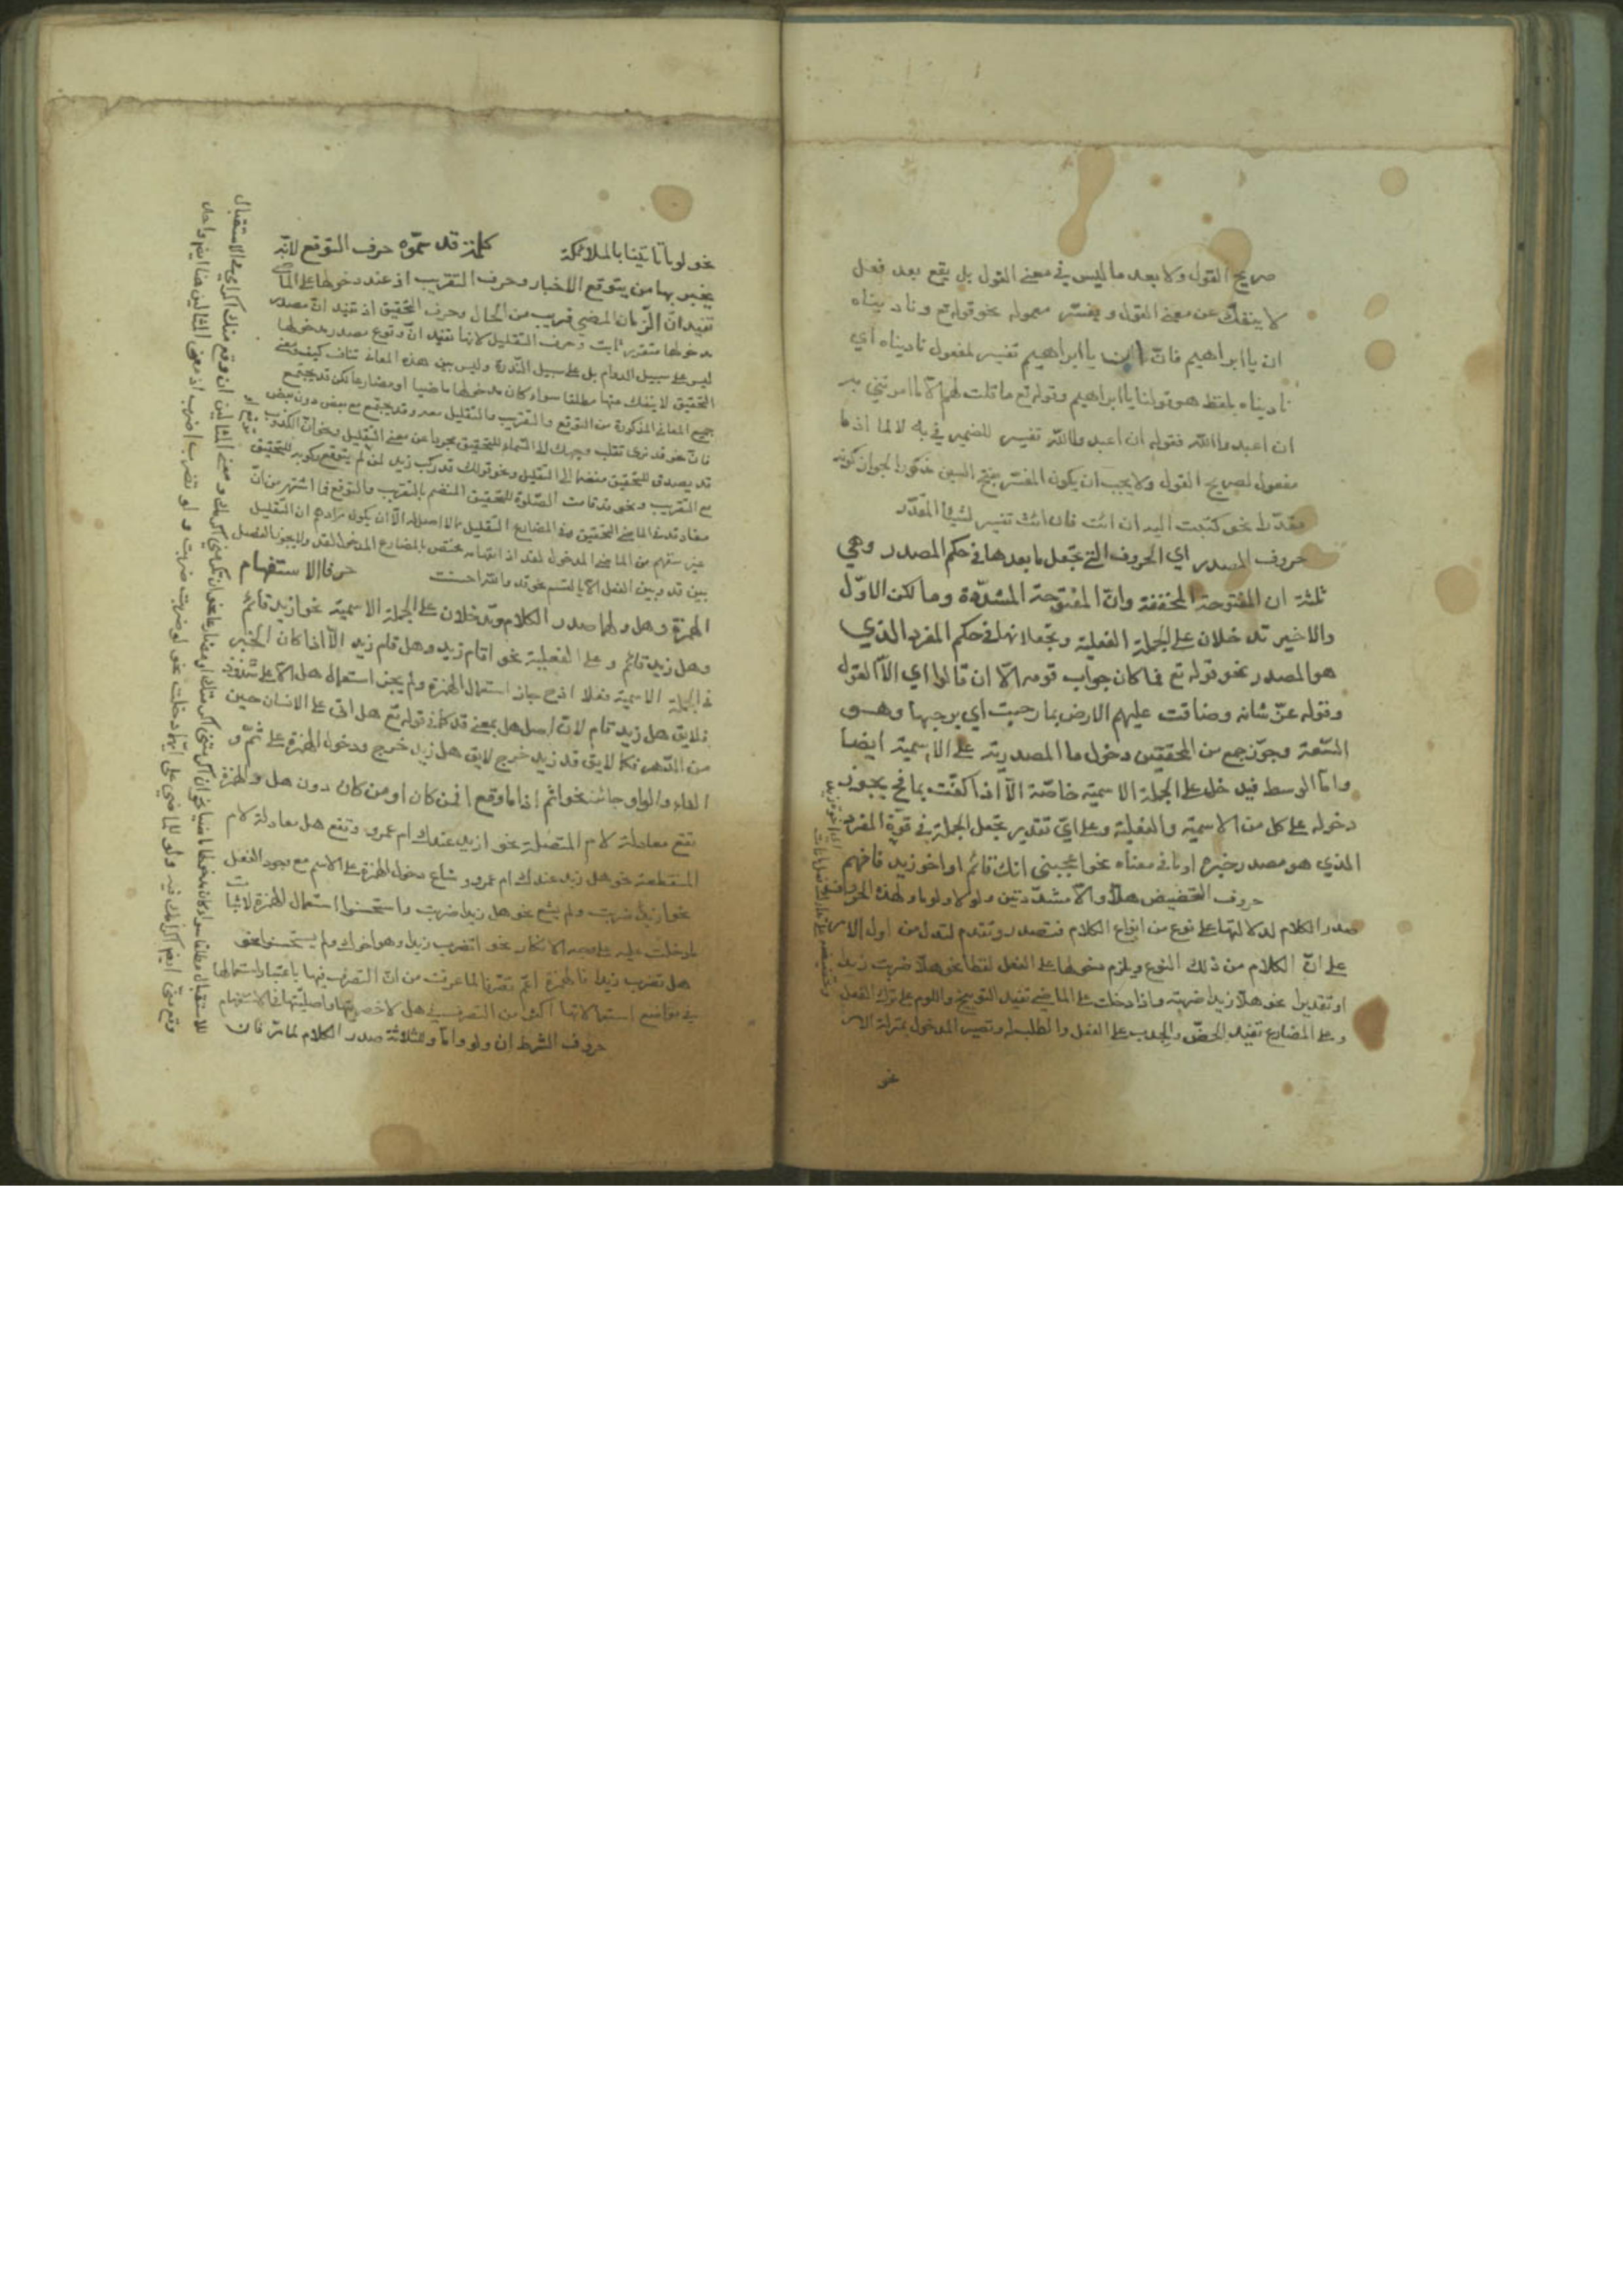 صريح القول ولا بعد ما ليس في معنى القول بل يقع بعد فعل
لا ينفك عن معنى القول ويفسّر معموله نحو قوله تع وناديناه
ان يا ابراهيم فانّ ان يا ابراهيم تفسير لمفعول ناديناه اي
ناديناه بلفظ هو قولنا يا ابراهيم وقوله تع ما قلت لهم الا ما امرتني به
ان اعبدوا الله فقوله ان اعبدوا الله تفسير للضمير في به لا لما اذ ما
مفعول لصريح القول ولا يجب ان يكون المفسّر بفتح السين مذكورا لجواز كونه
مقدّرا نحو كتبت اليه ان ائت فان ائت تفسير لشيئا المقدّر
حروف المصدر اي الحروف التي تجعل ما بعدها في حكم المصدر وهي
ثلثة ان المفتوحة المخففة وانّ المفتوحة المشدّدة وما لكن الاوّل
والاخير تدخلان على الجملة الفعلية وتجعلانها في حكم المفرد الذي
هو المصدر نحو قوله تع فما كان جواب قومه الّا ان قالوا اي الّا القول
وقوله عزّ شانه وضاقت عليهم الارض بما رحبت اي برحبها وهو
السّعة وجوّز جمع من المحققين دخول ما المصدرية على الاسمية ايضا
وامّا الوسط فيدخل على الجملة الاسمية خاصّة الّا اذا كفّت بما فح يجوز
دخوله على كل من الاسمية والفعلية وعلى ايّ تقدير تجعل الجملة في قوّة المفرد
الذي هو مصدر خبره او ما في معناه نحو اعجبني انك قائم او اخو زيد فافهم
حروف التحضيض هلّا والّا مشدّدتين ولولا ولوما ولهذه الحروف
صدر الكلام لدلالتها على نوع من انواع الكلام فتصدر وتقدم لتدل من اول الامر
على انّ الكلام من ذلك النوع ويلزم دخولها على الفعل لفظا نحو هلّا ضربت زيدا
او تقديرا نحو هلّا زيدا ضربته واذا دخلت على الماضي تفيد التوبيخ واللوم على ترك الفعل
وعلى المضارع تفيد الحضّ والطلب له وتصير المدخول بمنزلة الامر
نحو
نحو لو ما تاتينا بالملائكة كلمة قد سمّوه حرف التوقع لانّه
يخبر بها من يتوقع الاخبار وحرف التقريب اذ عند دخولها على الماضي
تفيد انّ الزمان المضي قريب من الحال وحرف التحقيق اذ تفيد انّ مصدر
مدخولها متقرر ثابت وحرف التقليل لانها تفيد انّ وقوع مصدر مدخولها
ليس على سبيل الدوام بل على سبيل النّدرة وليس بين هذه المعاني تناف كيف ومعنى
التحقيق لا ينفك عنها مطلقا سواء كان مدخولها ماضيا او مضارعا لكن قد يجتمع
جميع المعاني المذكورة من التوقع والتقريب والتقليل معه وقد يجتمع مع بعض دون بعض
فانّ نحو قد نرى تقلب وجهك في السماء للتحقيق مجردا عن معنى التقليل ونحو انّ الكذوب
قد يصدق للتحقيق منضما الى التقليل ونحو قولك قد ركب زيد لمن لم يتوقع ركوبه للتحقيق
مع التقريب ونحو قد قامت الصّلوة للتحقيق المنضم بالتقريب والتوقع فما اشتهر من انّ
مفاد قد في الماضي التحقيق وفي المضارع التقليل مما لا اصل له الّا ان يكون مرادهم ان التقليل
بين قد وبين الفعل الّا بالقسم نحو قد والله احسنت حرفا الاستفهام
الهمزة وهل ولهما صدر الكلام وتدخلان على الجملة الاسمية نحو ازيد قائم
وهل زيد قائم وعلى الفعلية نحو اقام زيد وهل قام زيد الّا اذا كان الخبر
في الجملة الاسمية فعلا اذ ح جاز استعمال الهمزة ولم يجز استعمال هل الّا على شذوذ
فلا يق هل زيد قام لانّ اصل هل بمعنى قد كما في قوله تع هل اتى على الانسان حين
من الدّهر فكما لا يق قد زيد خرج لا يق هل زيد خرج ودخول الهمزة على ثمّ و
الفاء والواو جائز نحو اثم اذا ما وقع افمن كان او من كان دون هل والهمزة
تقع معادلة لام المتصلة نحو ازيد عندك ام عمرو وتقع هل معادلة لام
المنقطعة نحو هل زيد عندك ام عمرو وشاع دخول الهمزة على الاسم مع وجود الفعل
نحو ازيدا ضربت ولم يشع نحو هل زيدا ضربت واستحسنوا استعمال الهمزة لاثبات
ما دخلت عليه على وجه الانكار نحو اتضرب زيدا وهو اخوك ولم يستحسنوا نحو
هل تضرب زيدا فالهمزة اعمّ تصرّفا لما عرفت من انّ التصرف فيها باعتبار استعمالها
في مواضع استعمالاتها اكثر من التصرف في هل لاخصريتها واصليّتها في الاستفهام
حروف الشرط ان ولو وامّا وللثلاثة صدر الكلام لما مرّ فان